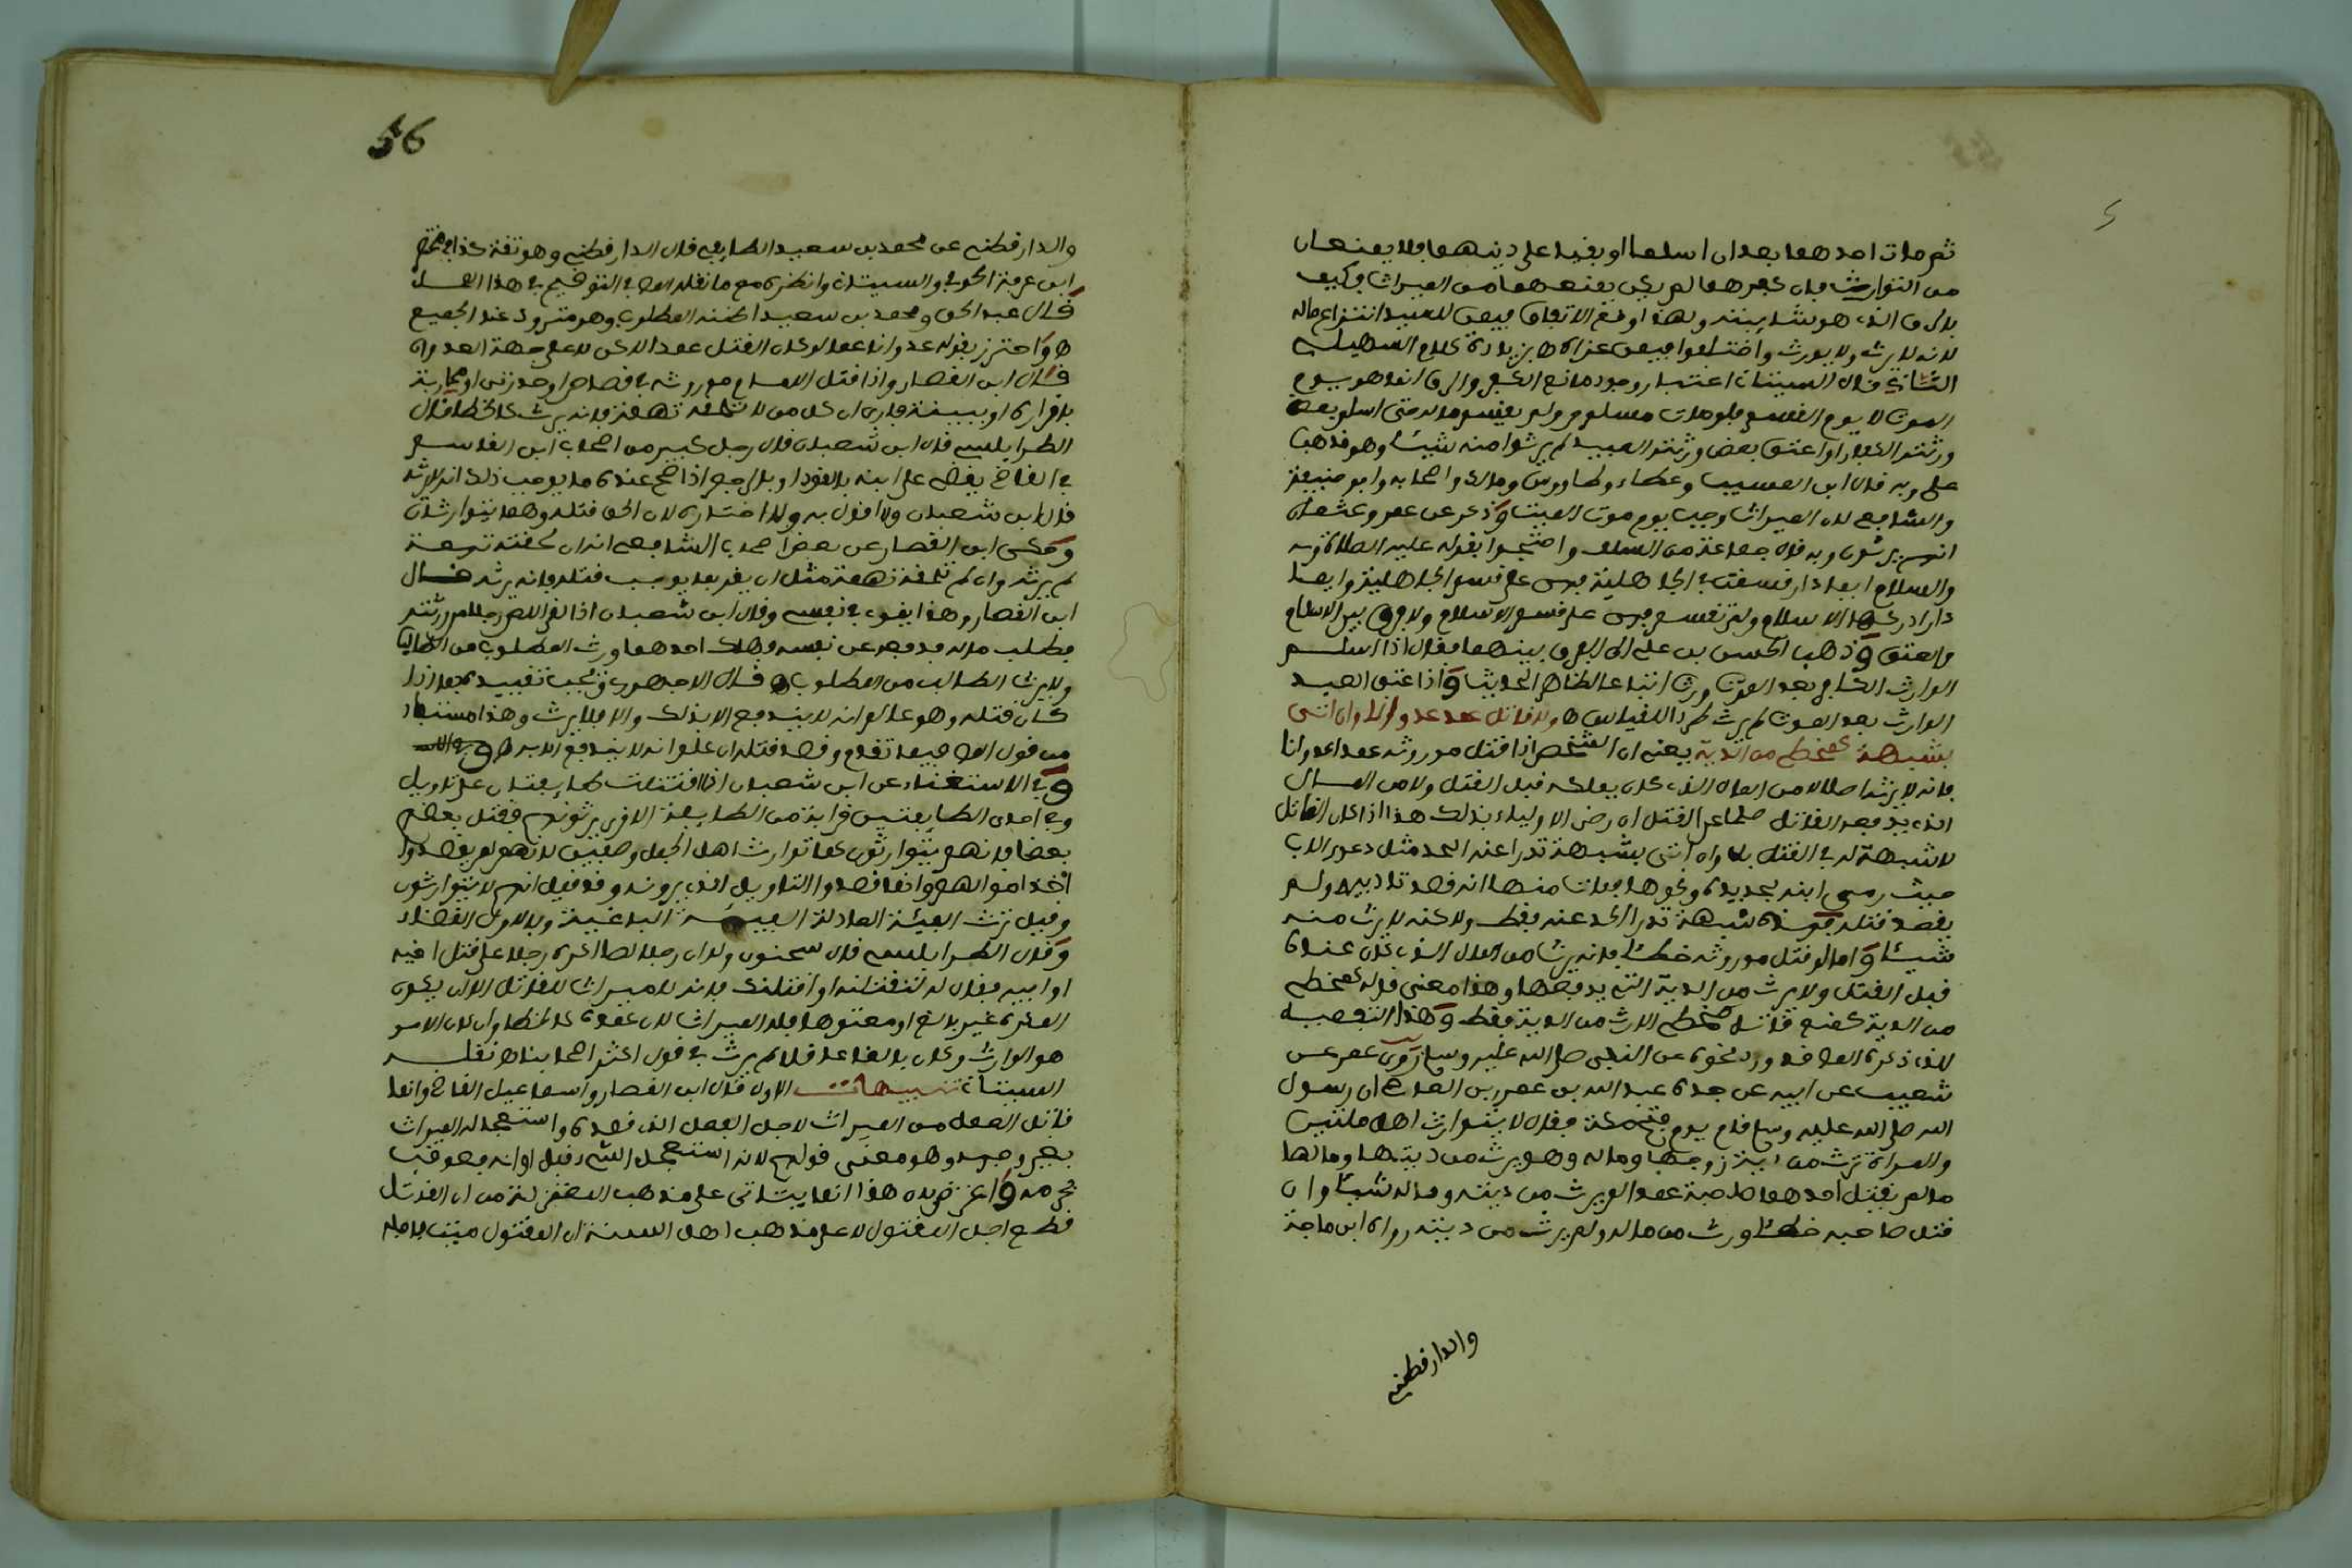 ثم مات احدهما بعد ان اسلما او بقيا على دينهما فلا يمنعان
من التوارث فان كفرهما لم يكن يمنعهما من الميراث فكيف
بالرق الذي هو شائبته ولهذا وقع الاتفاق فيمن للسيد انتزاع ماله
لانه لا يرث ولا يورث واختلفوا فيمن عداه
الثاني قال السيتاني اعتبار وجود مانع الكفر والرق انما هو يوم
الموت لا يوم القسم فلو مات مسلم حر ولم يقسم ماله حتى اسلم بعض
ورثته الكفار او اعتق بعض ورثته العبيد لم يرثوا منه شيئا وهو مذهب
علي وبه قال ابن المسيب وعطاء وطاووس ومالك واصحابه وابو حنيفة
والشافعي لان الميراث وجب يوم موت الميت وذكر عن عمر وعثمان
انهم يرثون وبه قال جماعة من السلف واحتجوا بقوله عليه الصلاة
والسلام ايما دار قسمت في الجاهلية فهي على قسم الجاهلية وايما
دار ادركها الاسلام ولم تقسم فهي على قسم الاسلام ولا فرق بين الاسلام
والعتق وذهب الحسن بن علي الى الفرق بينهما فقال اذا اسلم
الوارث الكافر بعد الموت ورث اتباعا لظاهر الحديث واذا عتق العبد
الوارث بعد الموت لم يرث طردا للقياس ولا قاتل عمد عدوانا وان اتى
بشبهة كمخطئ من الدية يعني ان الشخص اذا قتل موروثه عمدا عدوانا
فانه لا يرث اصلا لا من المال الذي كان يملكه قبل القتل ولا من المال
الذي يدفعه القاتل صلحا عن القتل ان رضى الاولياء بذلك هذا اذا كان القاتل
لا شبهة له في القتل بل وان اتى بشبهة تدرا عنه الحد مثل دعوى الاب
حيث رمى ابنه بحديدة ونحوها فمات منها انه قصد تاديبه ولم
يقصد قتله فهذه شبهة تدرا الحد عنه فقط ولاكنه لا يرث منه
شيئا واما لو قتل موروثه خطئا فانه يرث من المال الذي كان عنده
قبل القتل ولا يرث من الدية التي يدفعها وهذا معنى قوله كمخطئ
من الدية كمنع قاتل مخطئ الارث من الدية فقط وهذا التفصيل
الذي ذكره المص قد ورد نحوه عن النبي صلى الله عليه وسلم روى عمر عن
شعيب عن ابيه عن جده عبد الله بن عمر بن العاص ان رسول
الله صلى الله عليه وسلم قام يوم فتح مكة فقال لا يتوارث اهل ملتين
والمراة ترث من دية زوجها وماله وهو يرث من ديتها ومالها
ما لم يقتل احدهما صاحبه عمدا لم يرث من ديته وماله شيئا وان
قتل صاحبه خطئا ورث من ماله ولم يرث من ديته رواه ابن ماجة
والدارقطني
56
والدارقطني عن محمد بن سعيد الطايفي قال الدارقطني وهو ثقة كذا في مختصر
ابن عرفة الحوفي والسيتاني وانظره مع ما نقله المص في التوضيح في هذا المحل
قال عبد الحق ومحمد بن سعيد اظنه المطلوب وهو متروك عند الجميع
واحترز بقوله عدوانا عما لو كان القتل عمدا لاكن لا على جهة العدوان
قال ابن القصار واذا قتل الامام موروثه في قصاص او حد زنى او محاربة
باقراره او ببينة فارى ان كل من لا تلحقه تهمة فانه يرث كالخطا قال
الطرابلسي قال ابن شعبان قال رجل كبير من اصحاب ابن القاسم
في القاضي يقضي على ابنه بالقود او بالرجم اذا صح عنده ما يوجب ذلك انه لا يرثه
قال ابن شعبان ولا اقول به ولا اختاره لان الحق قتله وهما يتوارثان
وحكى ابن القصار عن بعض اصحاب الشافعي انه ان لحقته تهمة
لم يرثه وان لم تلحقه تهمة مثل ان يقر بما يوجب قتله فانه يرثه قال
ابن القصار وهذا يقوى في نفسي وقال ابن شعبان اذا لقي اللص رجلا من ورثته
فطلب ماله فدفعه عن نفسه فهلك احدهما ورث المطلوب من الطالب
ولا يرث الطالب من المطلوب قال الاجهوري ويجب تقييده بما اذا
كان قتله وهو عالم انه لا يندفع الا بذلك والا فلا يرث وهذا مستفاد
من قول المص فيما تقدم وقصد قتله ان علم انه لا يندفع الا به
وفي الاستغناء عن ابن شعبان اذا اقتتلت طايفتان على تاويل
وفي احدى الطايفتين قرابة من الطايفة الاخرى يرثونهم فقتل بعضهم
بعضا فانهم يتوارثون كما توارث اهل الجمل وصفين لانهم لم يقصدوا
اخذ اموالهم وانما قصدوا التاويل الذي يرونه وقد قيل انهم لا يتوارثون
وقيل ترث الفئة العادلة الفئة الباغية وبالاول القضاء
وقال الطرابلسي قال سحنون ولو ان رجلا لصا اكره رجلا على قتل اخيه
او ابيه فقال له لتقتلنه او اقتلنك فانه لا ميراث للقاتل الا ان يكون
المكره غير بالغ او معتوها فله الميراث لان عمده كالخطا وان كان الامر
هو الوارث وكان بالغا عاقلا لم يرث في قول اكثر اصحابنا نقله
السيتاني تنبيهات الاول قال ابن القصار واسماعيل القاضي وانما
قاتل العمد من الميراث لاجل الفعل الذي قصده واستعجاله الميراث
بغير وجهه وهو معنى قولهم لانه استعجل الشيء قبل اوانه فعوقب
بحرمانه واعترض بان هذا انما يتاتى على مذهب المعتزلة من ان القاتل
قطع اجل المقتول لا على مذهب اهل السنة ان المقتول ميت باجله